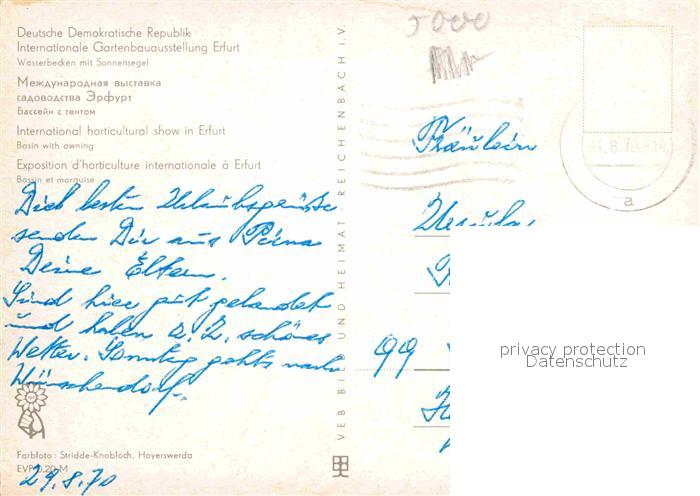 Deutsche Demokratische Republik
Internationale Gartenbauausstellung Erfurt
Wasserbecken mit Sonnensegel
Международная выставка
садоводства Эрфурт
Бассейн с тентом
International horticultural show in Erfurt
Basin with awning
Exposition d'horticulture internationale à Erfurt
Bassin et marquise
Die besten Urlaubsgrüße
senden Dir aus Pirna
Deine Eltern.
Sind hier gut gelandet
und haben z. Z. schönes
Wetter. Sonntag gehts nach
Wünschendorf.
Farbfoto: Stridde-Knobloch, Hoyerswerda
EVP 0,20 M
29.8.70
VEB BILD UND HEIMAT REICHENBACH I. V.
5000
31.8.70-14
a
Fräulein
Ursula
99
privacy protection
Datenschutz